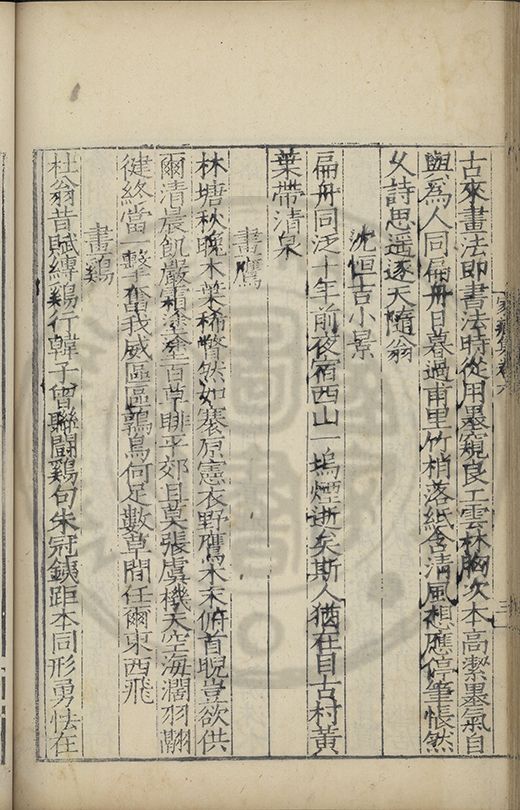 家藏集卷六　三
古來畫法即書法時從用墨窺良工雲林胸次本高潔墨氣自
與為人同扁舟日暮過甫里竹梢落紙含清風想應停筆悵然
久詩思遥逐天隨翁
沈恒吉小景
扁舟同泛十年前夜宿西山一塢煙逝矣斯人猶在目古村黄
葉帶清泉
畫鷹
林塘秋晚木葉稀瞥然如褰原憲衣野鷹木末俯首睨豈欲供
爾清晨飢嚴霜塗塗百草腓平郊且莫張虞機天空海濶羽翮
健終當一擊奮我威區區鶉鳥何足數草間任爾東西飛
畫鷄
杜翁昔賦縛鷄行韓子曾聯鬬鷄句朱冠銕距本同形勇怯在